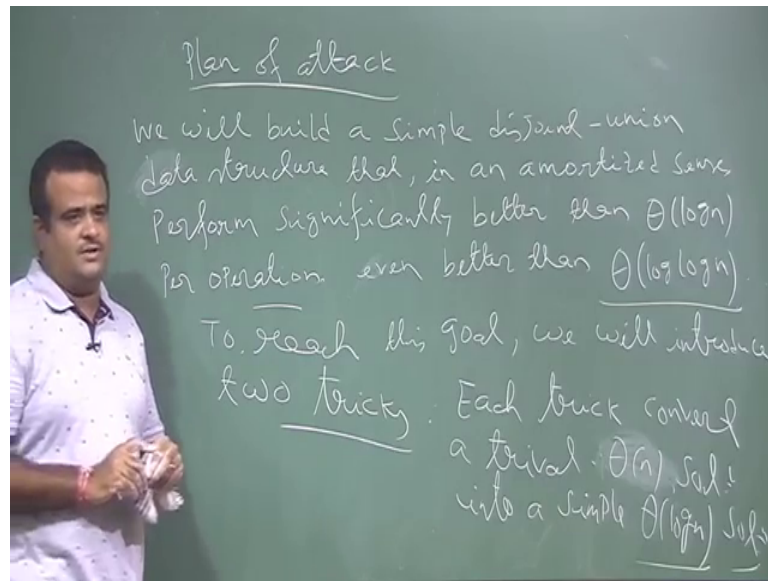 Plan of attack
We will build a simple disjoind-union
data structure that, in an amortized sense,
Perform significantly better than Θ(logn)
Per operation even better than Θ(log logn).
To reach this goal, we will introduce
two tricks. Each trick convert
a trival Θ(n) sol.
into a simple Θ(logn) sol.